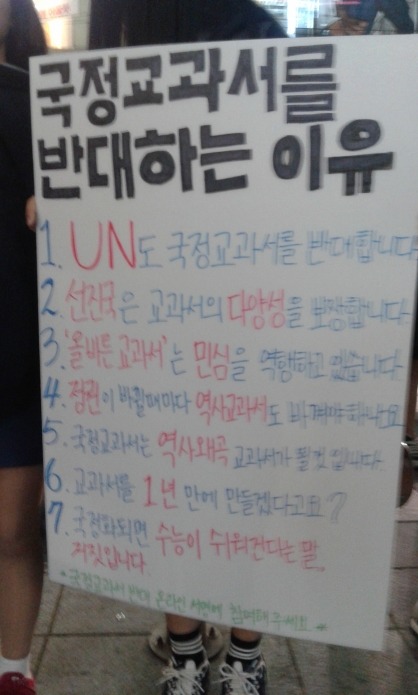 국정교과서를
반대하는 이유
1. UN도 국정교과서를 반대합니다
2. 선진국은 교과서의 다양성을 보장합니다
3. '올바른 교과서'는 민심을 역행하고 있습니다
4. 정권이 바뀔때마다 역사교과서도 바뀌어야하나요
5. 국정교과서는 역사왜곡 교과서가 될 것 입니다.
6. 교과서를 1년 만에 만들겠다고요?
7. 국정화되면 수능이 쉬워진다는 말,
거짓입니다.
* 국정교과서 반대 온라인 서명에 참여해주세요 *